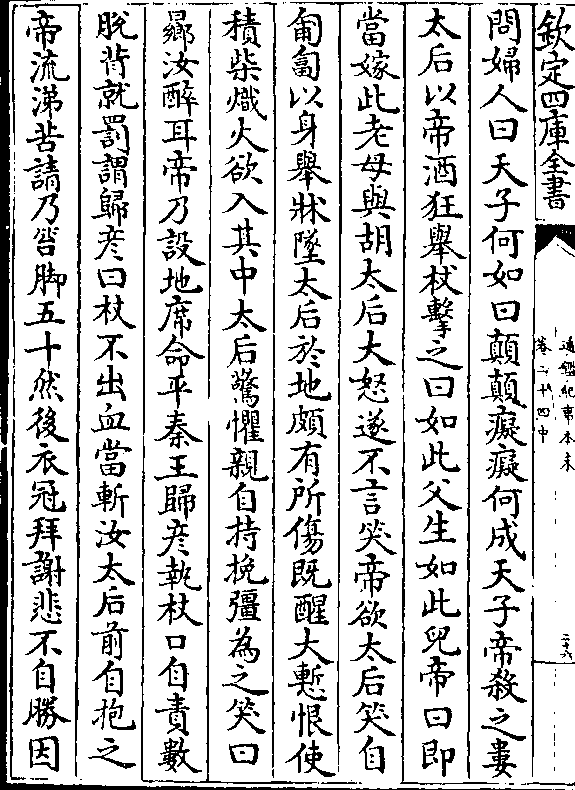 欽定四庫全書
通鑑紀事本末
卷二十四中
二十六
問婦人曰天子何如曰顛顛癡癡何成天子帝殺之婁
太后以帝酒狂舉杖擊之曰如此父生如此兒帝曰即
當嫁此老母與胡太后大怒遂不言笑帝欲太后笑自
匍匐以身舉牀墜太后於地頗有所傷既醒大慙恨使
積柴熾火欲入其中太后驚懼親自持挽彊為之笑曰
曏汝醉耳帝乃設地席命平秦王歸彦執杖口自責數
脫背就罰謂歸彦曰杖不出血當斬汝太后前自抱之
帝流涕苦請乃笞脚五十然後衣冠拜謝悲不自勝因